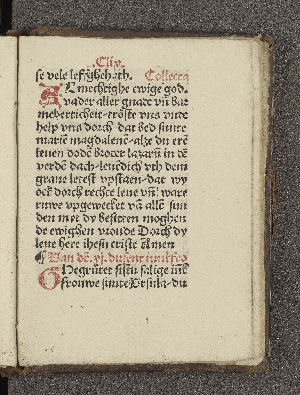 .Cliv.
se vele leſzghebath. Collecta
Almechtighe ewige god.
vader aller gnade vñ bar
meherticheit trőste vns vnde
help vns dorch dat bed sunte
marie͂ magdalene͂ alze du ere͂
leuen dode͂ broter lazaru͂ in de͂
verde͂ dach leue͂dich vth dem
graue letest vpstaen dat wy
ock dorch rechte leue vñ ware
ruwe vpgewecket va͂ alle͂ sun
den mẏt dy besitten moghen
de ewighen vroude Dorch dy
leue here ihesu criste Amen
¶ Van de͂ .xj. dusent iunkfro
Gegrütet sistu salige iu͂k
frouwe sunte Orsula du